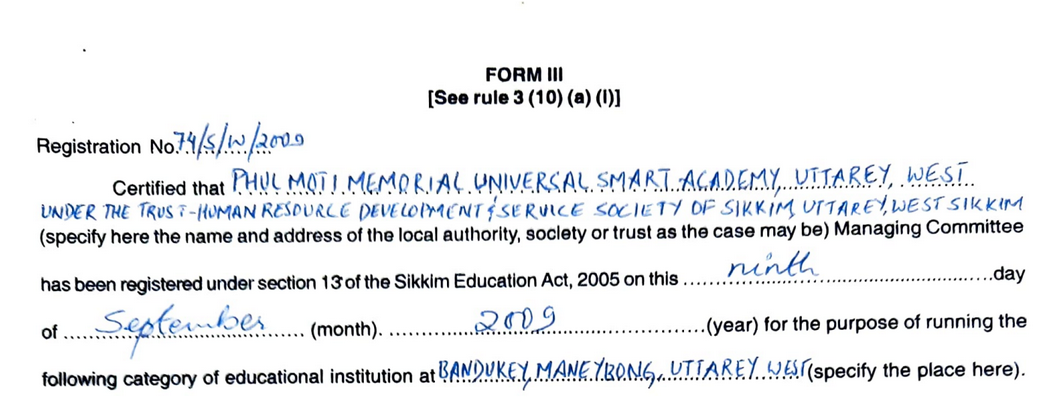 FORM III
[See rule 3 (10) (a) (I)]
Registration No. 74/S/W/2009
Certified that PHUL MOTI MEMORIAL UNIVERSAL SMART ACADEMY, UTTAREY, WEST
UNDER THE TRUST-HUMAN RESOURCE DEVELOPMENT & SERVICE SOCIETY OF SIKKIM, UTTAREY, WEST SIKKIM
(specify here the name and address of the local authority, society or trust as the case may be) Managing Committee
has been registered under section 13 of the Sikkim Education Act, 2005 on this ninth day
of September (month). 2009 (year) for the purpose of running the
following category of educational institution at BANDUKEY, MANEYBONG, UTTAREY WEST (specify the place here).